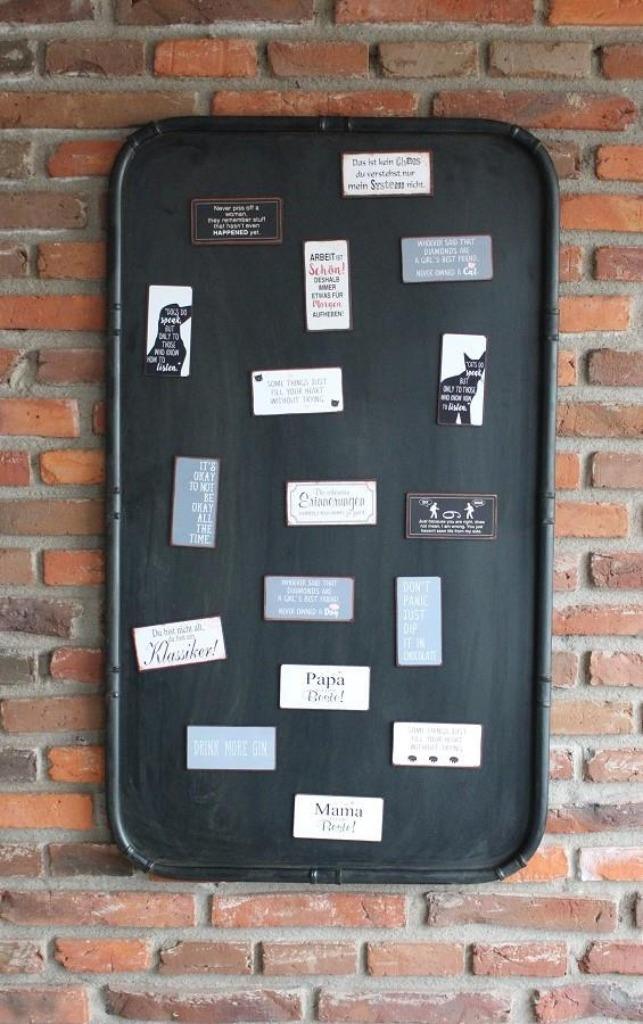 Das ist kein Chaos
du verstehst nur
mein System nicht.
Never piss off a
woman,
they remember stuff
that hasn't even
HAPPENED yet.
ARBEIT IST
Schön!
DESHALB
IMMER
ETWAS FÜR
Morgen
AUFHEBEN!
WHOEVER SAID THAT
DIAMONDS ARE
A GIRL'S BEST FRIEND,
NEVER OWNED A Cat
"DOGS DO
speak,
BUT
ONLY TO
THOSE
WHO KNOW
HOW TO
listen."
"CATS DO
speak
BUT
ONLY TO THOSE
WHO KNOW HOW
TO listen."
SOME THINGS JUST
FILL YOUR HEART
WITHOUT TRYING
IT'S
OKAY
TO NOT
BE
OKAY
ALL
THE
TIME
Die schönsten
Erinnerungen
Just because you are right, does
not mean, I am wrong. You just
haven't seen life from my side.
WHOEVER SAID THAT
DIAMONDS ARE
A GIRL'S BEST FRIEND,
NEVER OWNED A Dog
DON'T
PANIC
JUST
DIP
IT IN
CHOCOLATE
Du bist nicht alt,
du bist ein
Klassiker!
Papa
Beste!
DRINK MORE GIN
SOME THINGS JUST
FILL YOUR HEART
WITHOUT TRYING
Mama
Beste!